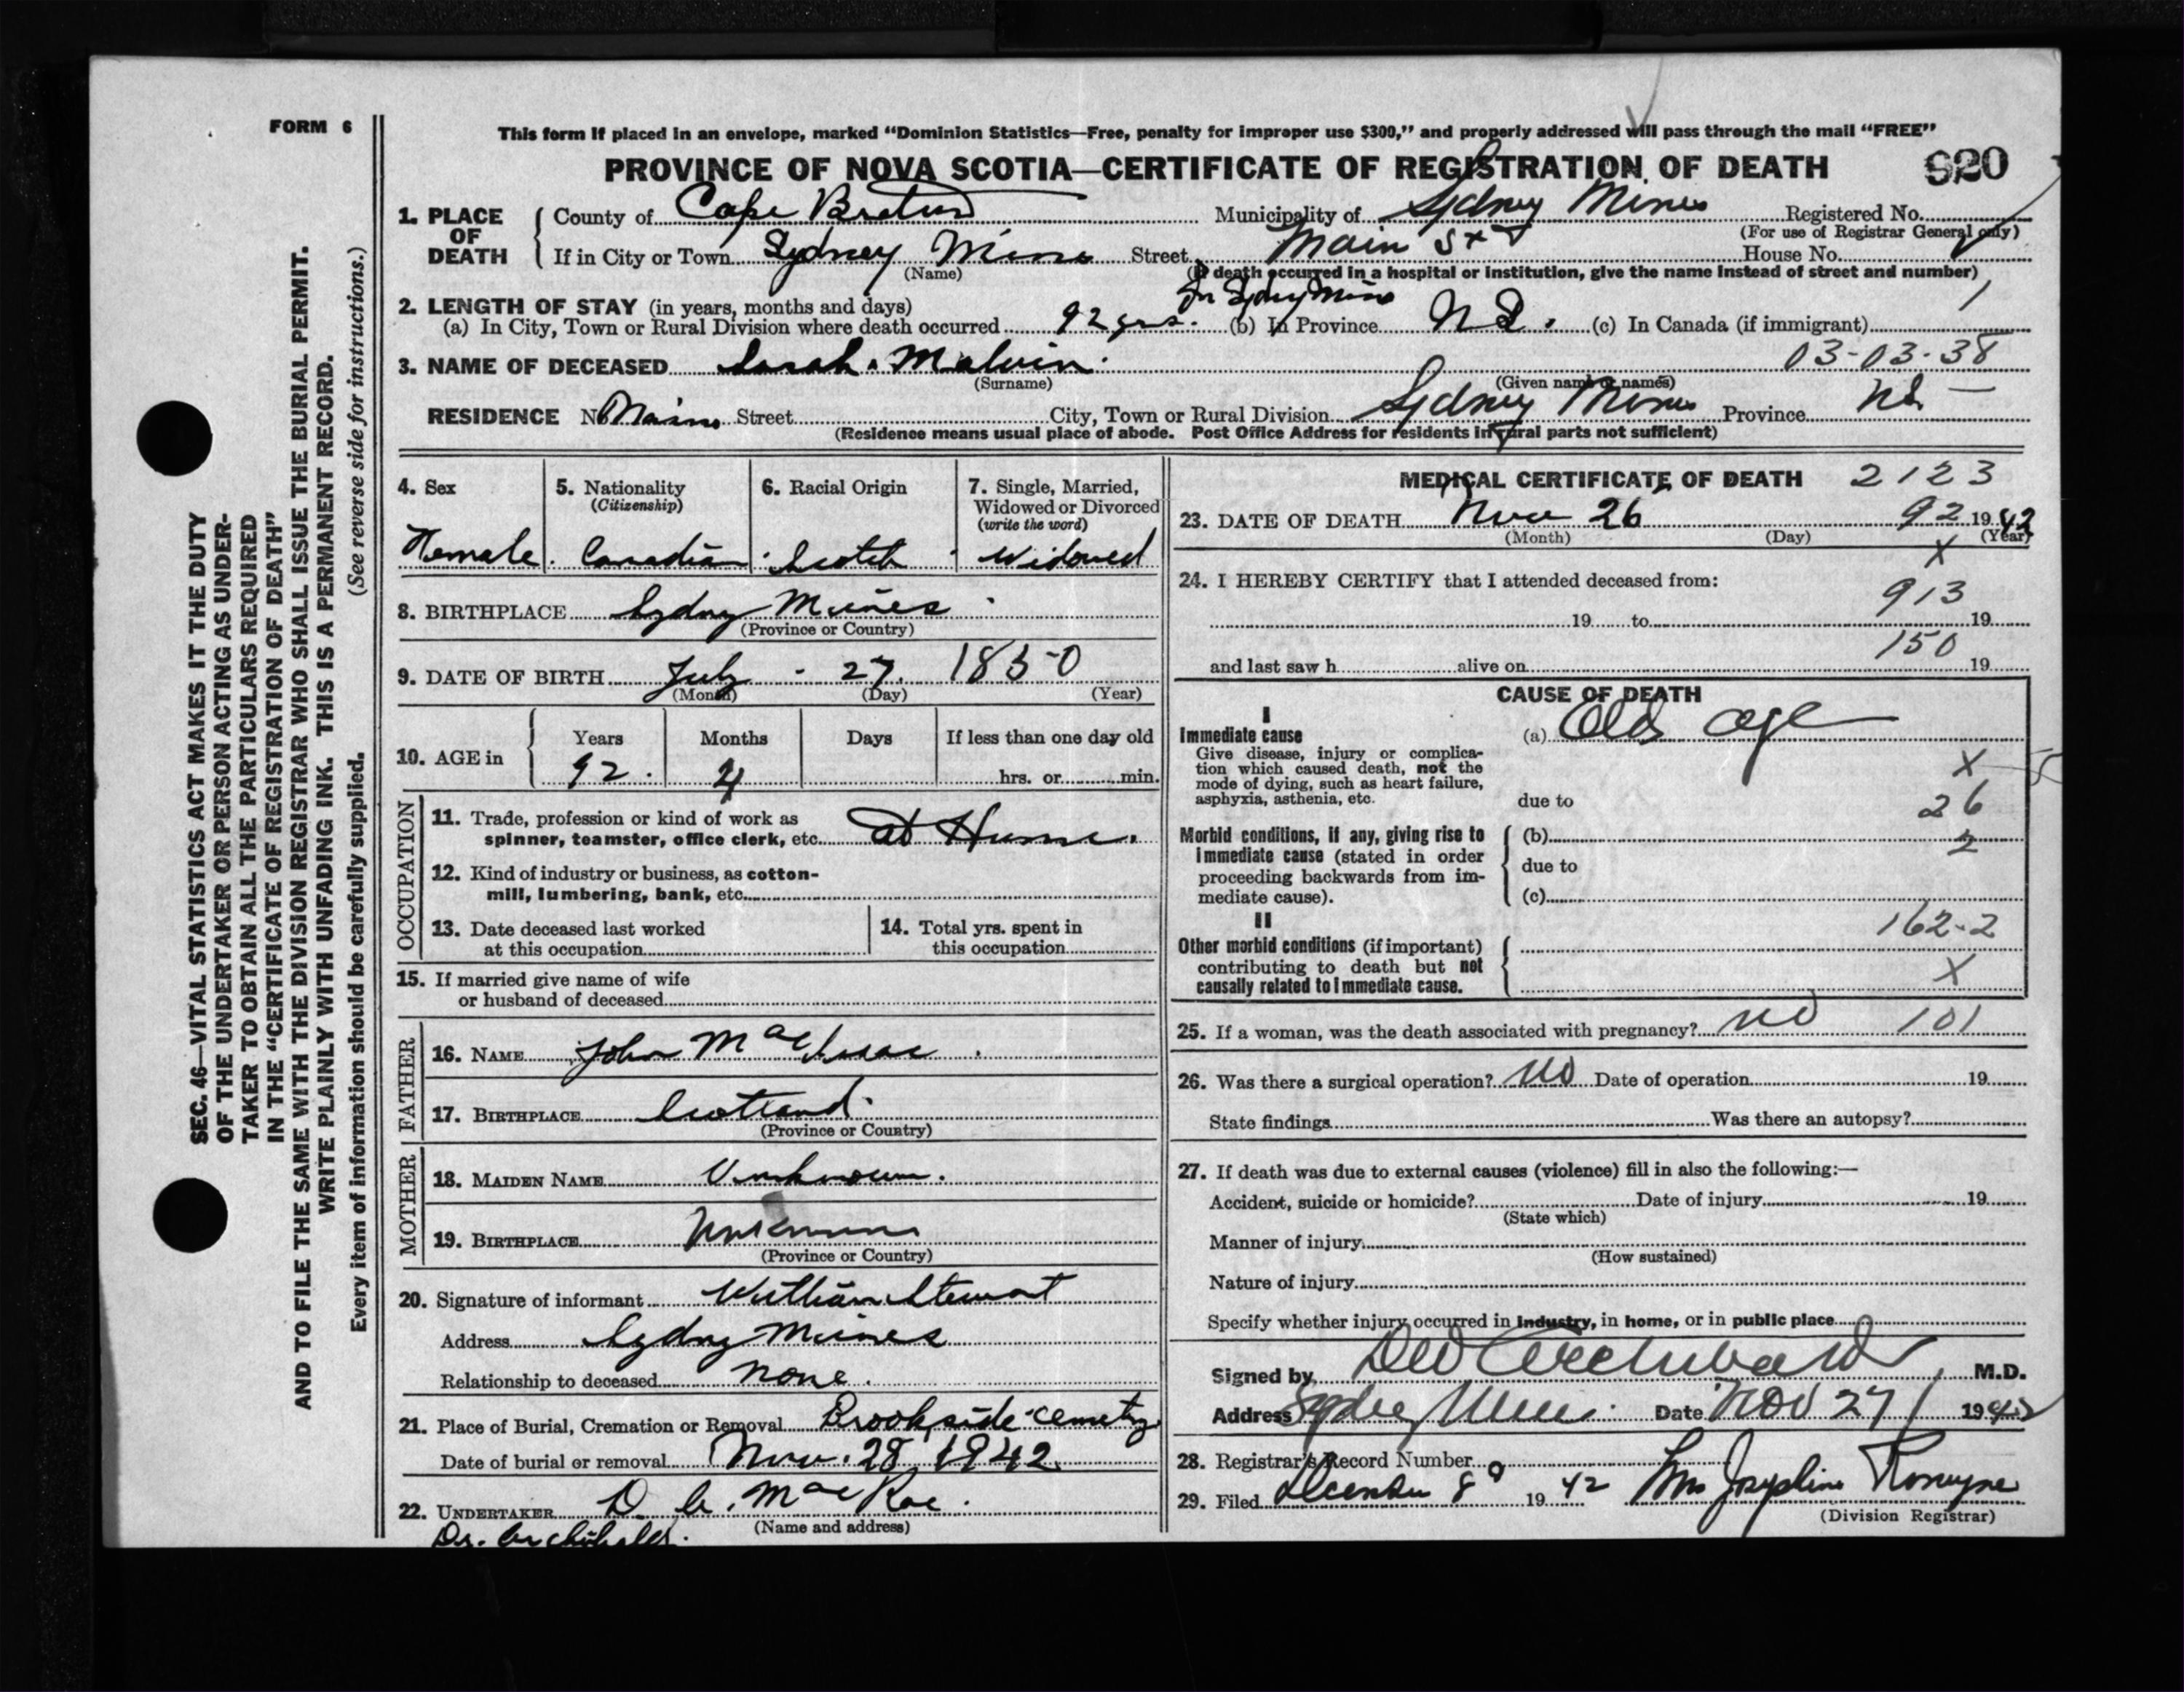 FORM 6
This form if placed in an envelope, marked “Dominion Statistics—Free, penalty for improper use $300,” and properly addressed will pass through the mail “FREE”
PROVINCE OF NOVA SCOTIA—CERTIFICATE OF REGISTRATION OF DEATH 920
SEC. 46—VITAL STATISTICS ACT MAKES IT THE DUTY
OF THE UNDERTAKER OR PERSON ACTING AS UNDER-
TAKER TO OBTAIN ALL THE PARTICULARS REQUIRED
IN THE “CERTIFICATE OF REGISTRATION OF DEATH”
AND TO FILE THE SAME WITH THE DIVISION REGISTRAR WHO SHALL ISSUE THE BURIAL PERMIT.
WRITE PLAINLY WITH UNFADING INK. THIS IS A PERMANENT RECORD.
Every item of information should be carefully supplied. (See reverse side for instructions.)
1. PLACE OF DEATH
County of Cape Breton Municipality of Sydney Mines Registered No.
(For use of Registrar General only)
If in City or Town Sydney Mines Street Main St House No.
(Name)
(If death occurred in a hospital or institution, give the name instead of street and number)
2. LENGTH OF STAY (in years, months and days)
In Sydney Mines 1
(a) In City, Town or Rural Division where death occurred 92 yrs. (b) In Province N S. (c) In Canada (if immigrant)
03-03-38
3. NAME OF DECEASED Sarah Malvin
(Surname) (Given name or names)
RESIDENCE No Main Street City, Town or Rural Division Sydney Mines Province N S
(Residence means usual place of abode. Post Office Address for residents in rural parts not sufficient)
4. Sex
Female
5. Nationality
(Citizenship)
Canadian
6. Racial Origin
Scotch
7. Single, Married,
Widowed or Divorced
(write the word)
Widowed
8. BIRTHPLACE Sydney Mines
(Province or Country)
9. DATE OF BIRTH July - 27 1850
(Month) (Day) (Year)
10. AGE in
Years Months Days If less than one day old
92 4 hrs. or min.
OCCUPATION
11. Trade, profession or kind of work as
spinner, teamster, office clerk, etc. at Home.
12. Kind of industry or business, as cotton-
mill, lumbering, bank, etc.
13. Date deceased last worked
at this occupation
14. Total yrs. spent in
this occupation
15. If married give name of wife
or husband of deceased
FATHER
16. NAME John MacIsaac
17. BIRTHPLACE Scotland.
(Province or Country)
MOTHER
18. MAIDEN NAME Unknown.
19. BIRTHPLACE Unknown
(Province or Country)
20. Signature of informant William Stewart
Address Sydney Mines
Relationship to deceased none.
21. Place of Burial, Cremation or Removal Brookside cemetery
Date of burial or removal Nov. 28 1942
22. UNDERTAKER D. A. MacRae.
(Name and address)
Dr. Archibald.
MEDICAL CERTIFICATE OF DEATH 2123
23. DATE OF DEATH Nov 26 92 1942
(Month) (Day) (Year)
X
24. I HEREBY CERTIFY that I attended deceased from:
913
19 to 19
150
and last saw h alive on 19
CAUSE OF DEATH
I
Immediate cause
Give disease, injury or complica-
tion which caused death, not the
mode of dying, such as heart failure,
asphyxia, asthenia, etc.
(a) Old age
X
due to 26
Morbid conditions, if any, giving rise to
immediate cause (stated in order
proceeding backwards from im-
mediate cause).
(b) 2
due to
(c)
II
162-2
Other morbid conditions (if important)
contributing to death but not
causally related to immediate cause.
X
25. If a woman, was the death associated with pregnancy? no 101
26. Was there a surgical operation? No Date of operation 19
State findings Was there an autopsy?
27. If death was due to external causes (violence) fill in also the following:—
Accident, suicide or homicide? Date of injury 19
(State which)
Manner of injury
(How sustained)
Nature of injury
Specify whether injury occurred in industry, in home, or in public place
Signed by DW Archibald, M.D.
Address Sydney Mines Date Nov 27 1942
28. Registrar's Record Number
29. Filed December 8 1942 Mrs Josephine
(Division Registrar)